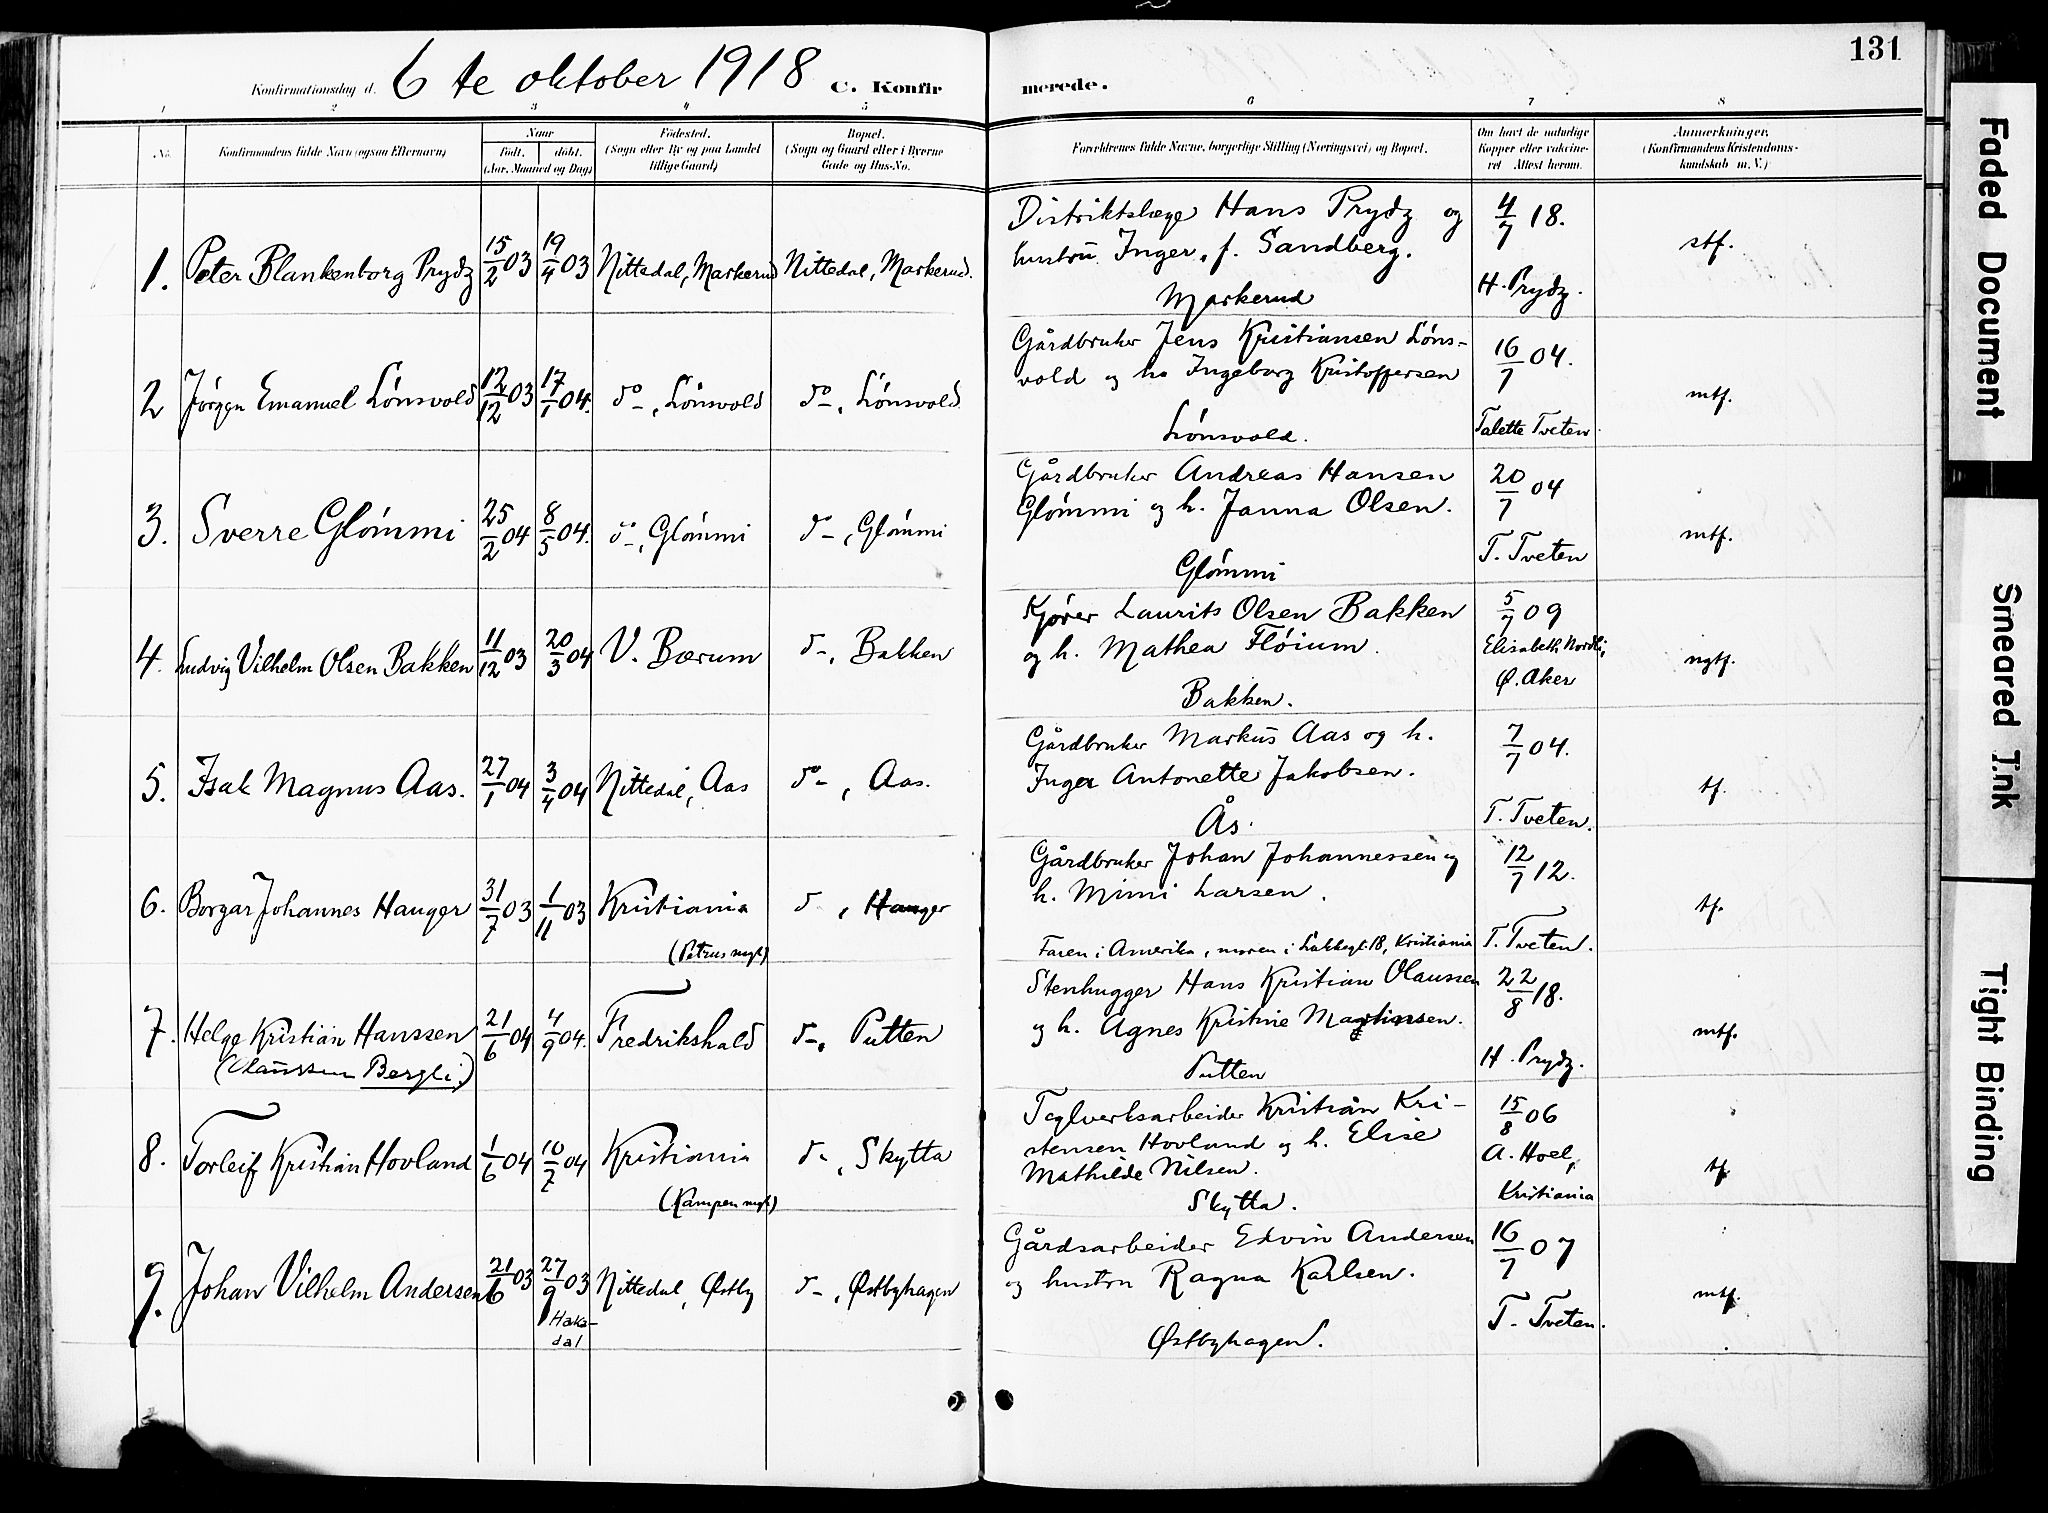 131
Konfirmationsdag d. 6 te oktober 1918 C. Konfir merede.
1 2 3 4 5 6 7 8
No.
Konfirmandens fulde Navn (ogsaa Efternavn)
Naar
Født. døbt.
(Aar, Maaned og Dag)
Fødested.
(Sogn eller By og paa Landet
tillige Gaard)
Bopæl.
(Sogn og Gaard eller i Byerne
Gade og Hus-No.
Forældrenes fulde Navne, borgerlige Stilling (Næringsvei) og Bopæl.
Om havt de naturlige
Kopper eller vaccine-
ret Attest herom.
Anmærkninger,
(Konfirmandens Kristendoms-
kundskab m. V.)
1. Peter Blankenborg Prydz 15/2 03 19/4 03 Nittedal, Markerud Nittedal, Markerud.
Distriktslæge Hans Prydz og
hustru Inger, f. Sandberg.
Markerud
4/7 18.
H. Prydz.
stf.
2 Jörgen Emanuel Lönsvold 12/12 03 17/1 04. do, Lönsvold do, Lönsvold
Gårdbruker Jens Kristiansen Löns-
vold og h. Ingeborg Kristoffersen
Lönsvold.
16/7 04.
Talette Tveten.
mtf.
3. Sverre Glömmi 25/2 04 8/5 04. do, Glömmi do, Glömmi
Gårdbruker Andreas Hansen
Glömmi og h. Janna Olsen.
Glömmi
20/7 04
T. Tveten
mtf.
4. Ludvig Vilhelm Olsen Bakken 11/12 03 20/3 04 V. Bærum d-, Bakken
Kjører Laurits Olsen Bakken
og h. Mathea Flöium.
Bakken.
5/7 09
Elisabeth Nordli,
Ø. Aker
ngtf.
5. Isak Magnus Aas. 27/1 04 3/4 04 Nittedal, Aas do, Aas.
Gårdbruker Markus Aas og h.
Inger Antonette Jakobsen.
Ås.
7/7 04.
T. Tveten.
tf.
6. Borgar Johannes Hauger 31/7 03 1/11 03 Kristiania d , Hauger
(Petrus mgh)
Gårdbruker Johan Johannessen og
h. Mimi Larsen.
Faren i Amerika, moren i Lakkegt. 18, Kristiania
12/7 12.
T. Tveten.
tf.
7. Helge Kristian Hanssen 21/6 04 4/9 04. Fredrikshald d-, Putten
(Olaussen Bergli.)
Stenhugger Hans Kristian Olaussen
og h. Agnes Kristine Martinsen.
Putten
22/8 18.
H. Prydz.
mtf.
8. Torleif Kristian Hovland 1/6 04 10/7 04 Kristiania d-, Skytta
(Kampen mgh)
Teglverksarbeider Kristian Kri-
stensen Hovland og h. Elise
Mathilde Nilsen.
Skytta.
15/8 06
A. Hoel,
Kristiania
tf.
9. Johan Vilhelm Andersen 21/6 03 27/9 03 Nittedal, Østby d-, Østbyhagen
Haka-
dal
Gårdsarbeider Edvin Andersen
og hustru Ragna Karlsen.
Østbyhagen.
16/7 07
T. Tveten.
mtf.
Faded Document
Smeared Ink
Tight Binding